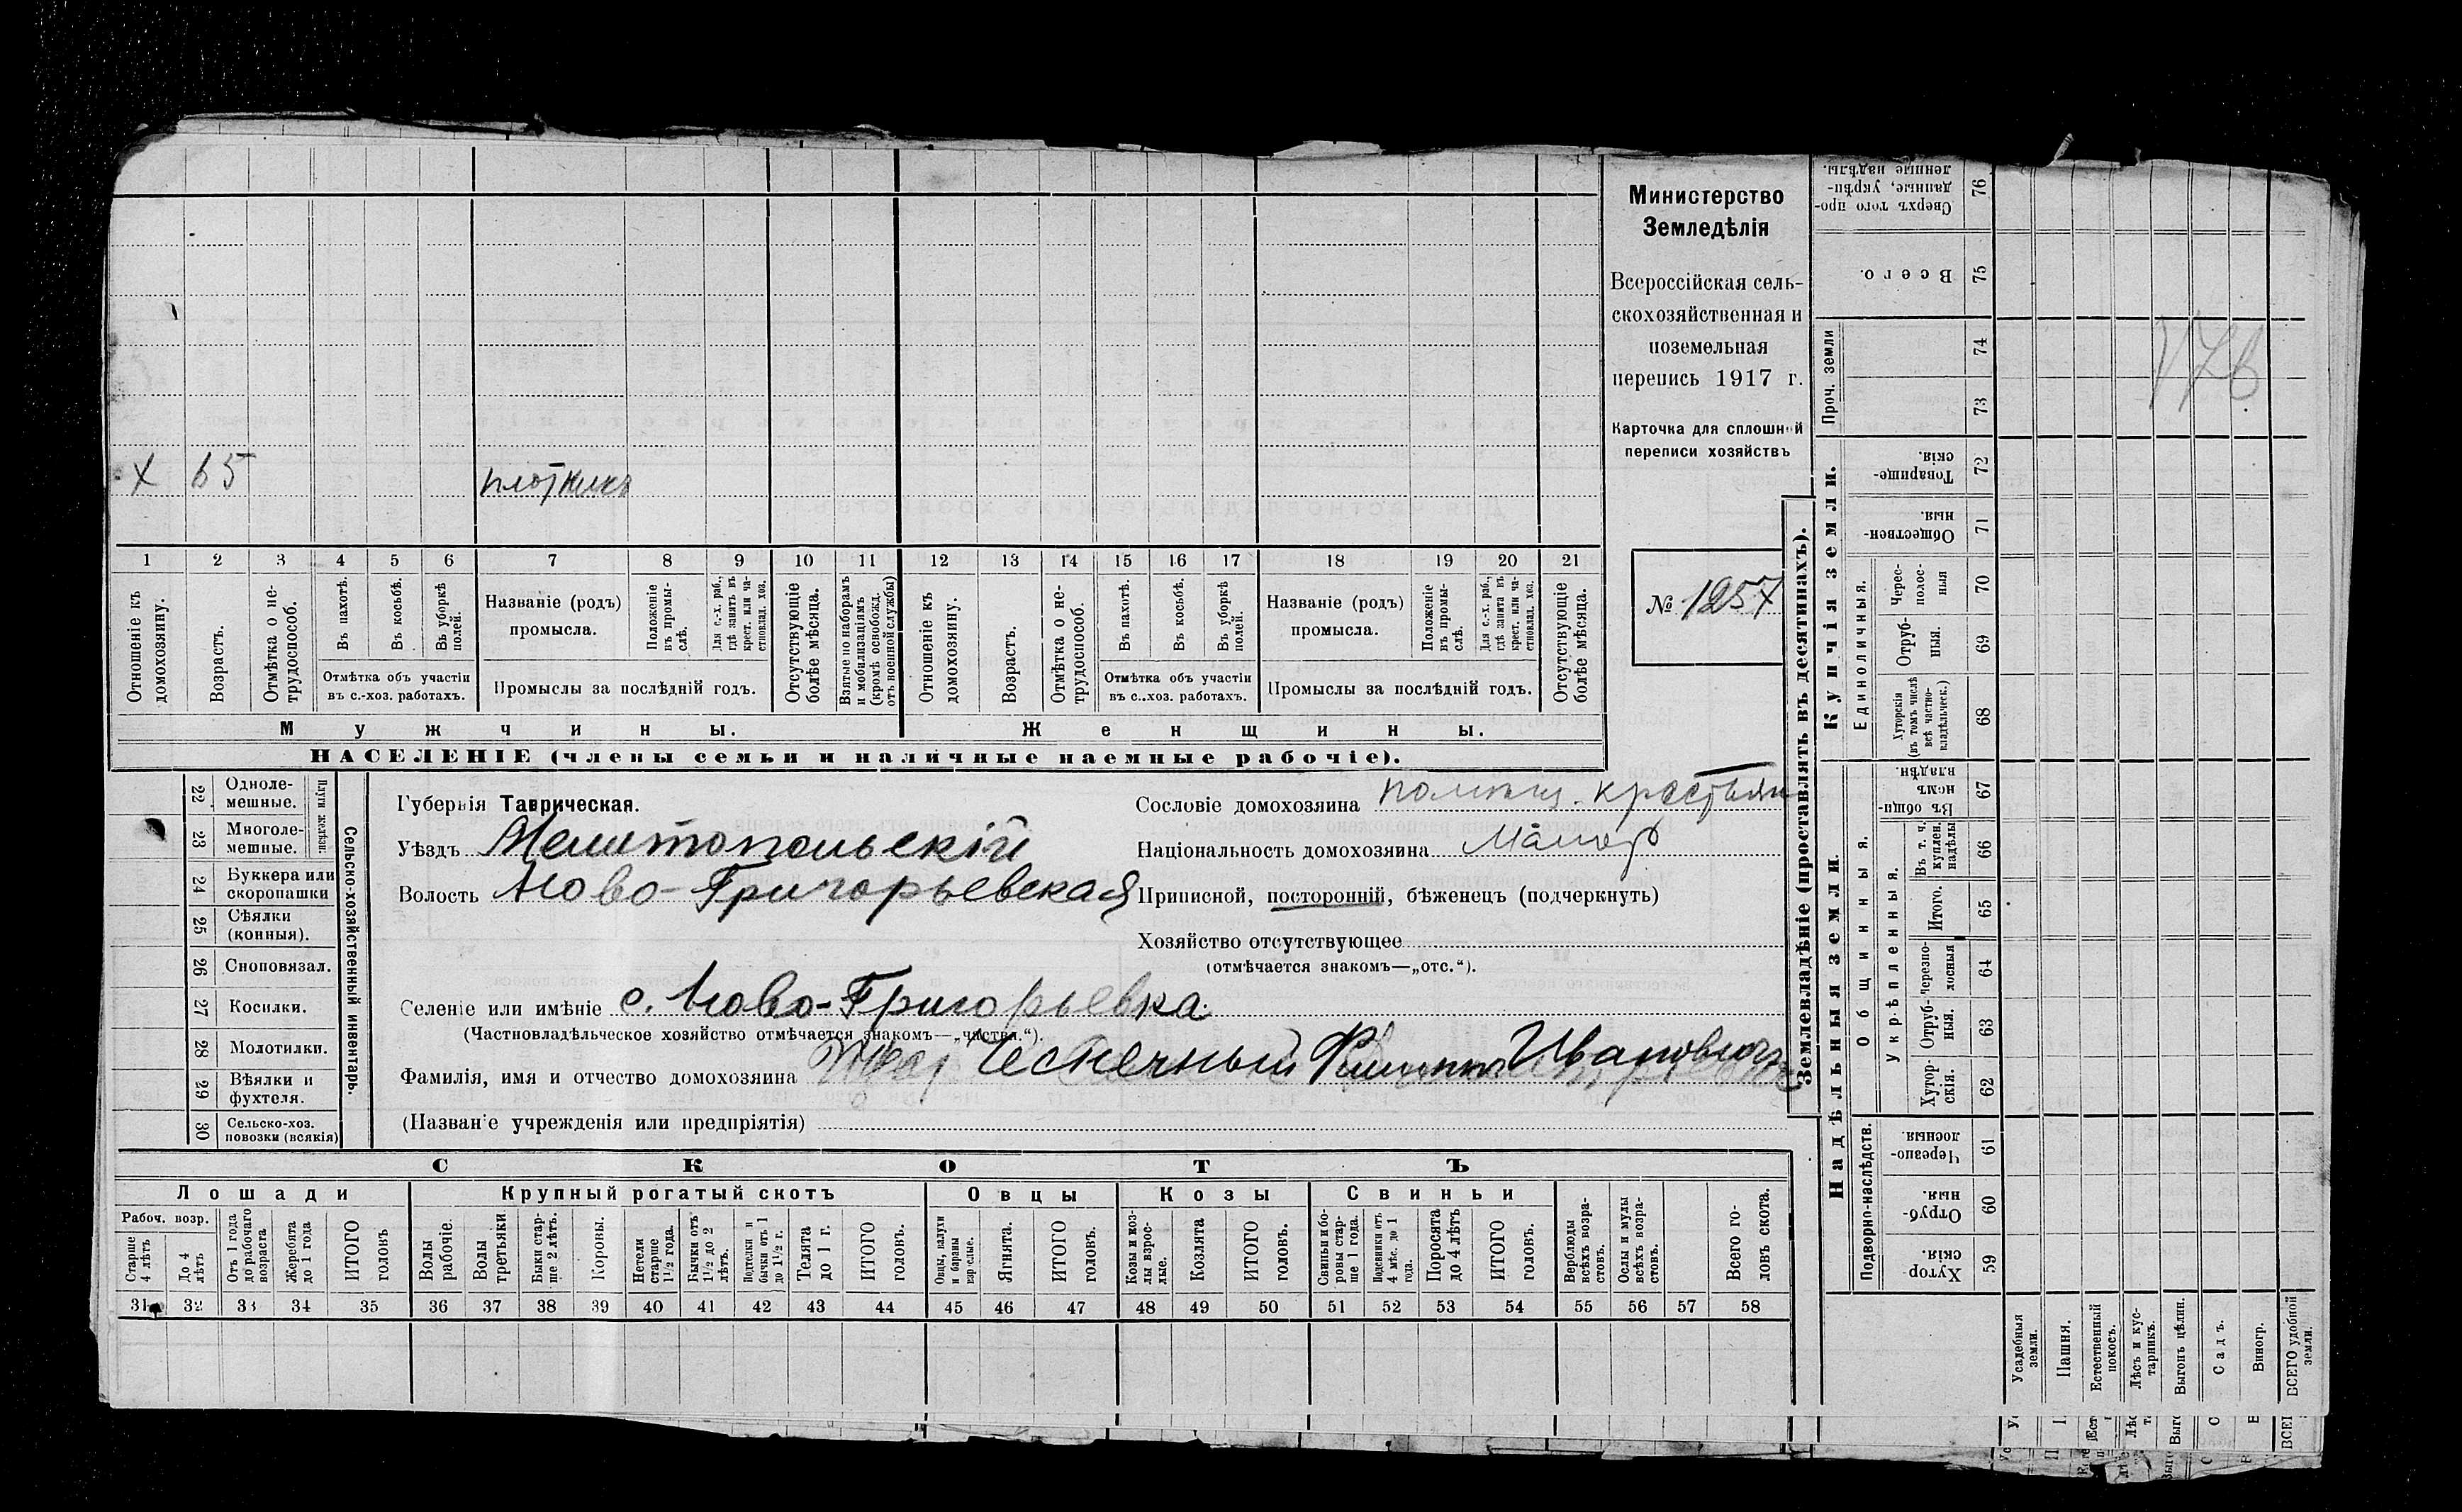 Министерство
Земледѣлія
Всероссійская сель-
скохозяйственная и
поземельная
перепись 1917 г.
Карточка для сплошной
переписи хозяйствъ
№ 1257
х 65 плотникъ
1 2 3 4 5 6 7 8 9 10 11 12 13 14 15 16 17 18 19 20 21
Отношеніе къ домохозяину.
Возрастъ.
Отмѣтка о не-трудоспособ.
Въ пахотѣ.
Въ косьбѣ.
Въ уборкѣ полей.
Отмѣтка объ участіи
въ с.-хоз. работахъ.
Названіе (родъ)
промысла.
Положеніе въ промы-слѣ.
Для с.-х. раб., гдѣ занятъ въ крест. или ча-стновлад. хоз.
Промыслы за послѣдній годъ.
Отсутствующіе болѣе мѣсяца.
Взятые по наборамъ и мобилизаціямъ (кромѣ освобожд. отъ военной службы)
Отношеніе къ домохозяину.
Возрастъ.
Отмѣтка о не-трудоспособ.
Въ пахотѣ.
Въ косьбѣ.
Въ уборкѣ полей.
Отмѣтка объ участіи
въ с.-хоз. работахъ.
Названіе (родъ)
промысла.
Положеніе въ промы-слѣ.
Для с.-х. раб., гдѣ занята въ крест. или ча-стновлад. хоз.
Промыслы за послѣдній годъ.
Отсутствующіе болѣе мѣсяца.
Мужчины. Женщины.
НАСЕЛЕНІЕ (члены семьи и наличные наемные рабочіе).
22 Одноле-мешные.
23 Многоле-мешные.
Плуги желѣзн.
24 Буккера или скоропашки
25 Сѣялки (конныя).
26 Сноповязал.
27 Косилки.
28 Молотилки.
29 Вѣялки и фухтеля.
30 Сельско-хоз. повозки (всякія)
Сельско-хозяйственный инвентарь.
Губернія Таврическая.
Уѣздъ Мелитопольскій
Волость Ново-Григорьевская
Сословіе домохозяина крестьян
Національность домохозяина малор
Приписной, посторонній, бѣженецъ (подчеркнуть)
Хозяйство отсутствующее
(отмѣчается знакомъ—„отс.“).
Селеніе или имѣніе с. Ново-Григорьевка
(Частновладѣльческое хозяйство отмѣчается знакомъ—„частн.“).
Фамилія, имя и отчество домохозяина Чесночный Филиппъ Ивановичъ
(Названіе учрежденія или предпріятія)
СКОТЪ
Лошади Крупный рогатый скотъ Овцы Козы Свиньи
Рабоч. возр.
Старше 4 лѣтъ
До 4 лѣтъ
Отъ 1 года до рабочаго возраста
Жеребята до 1 года
ИТОГО головъ
Волы рабочіе
Волы третьяки
Быки стар-ше 2 лѣтъ.
Коровы.
Нетели старше 1½ года.
Бычки отъ 1½ до 2 лѣтъ.
Подтелки и бычки отъ 1 до 1½ г.
Телята до 1 г.
ИТОГО головъ.
Овцы, валухи и бараны взрослые.
Ягнята.
ИТОГО головъ.
Козы и коз-лы взрос-лые.
Козлята
ИТОГО головъ.
Свиньи и бо-ровы стар-ше 1 года.
Подсвинки отъ 4 мѣс. до 1 года.
Поросята до 4 лѣтъ
ИТОГО головъ.
Верблюды всѣхъ возра-стовъ.
Ослы и мулы всѣхъ возра-стовъ.
Всего го-ловъ скота.
31 32 33 34 35 36 37 38 39 40 41 42 43 44 45 46 47 48 49 50 51 52 53 54 55 56 57 58
Землевладѣніе (проставлять въ десятинахъ).
Надѣльныя земли. Купчія земли. Проч. земли
Подворно-наслѣдств.
Общинныя.
Укрѣпленныя.
Единоличныя.
Сверхъ того про-данные, укрѣп-ленные надѣлы. 76
Всего. 75
74
73
Товарище-скія. 72
Обществен-ныя. 71
Черес-полос-ныя 70
Отруб-ныя. 69
Хуторскія (въ томъ числѣ всѣ частно-владѣльческ.) 68
Въ общи-номъ владѣн. 67
Въ т. ч. куплен. надѣлы 66
Итого. 65
Черезпо-лосныя 64
Отруб-ныя. 63
Хутор-скія. 62
Черезпо-лосныя. 61
Отруб-ныя. 60
Хутор-скія. 59
Усадебныя земли.
Пашня.
Естественный покосъ.
Лѣсъ и кус-тарникъ.
Выгонъ цѣлин.
Садъ.
Виногр.
ВСЕГО удобной земли.
176